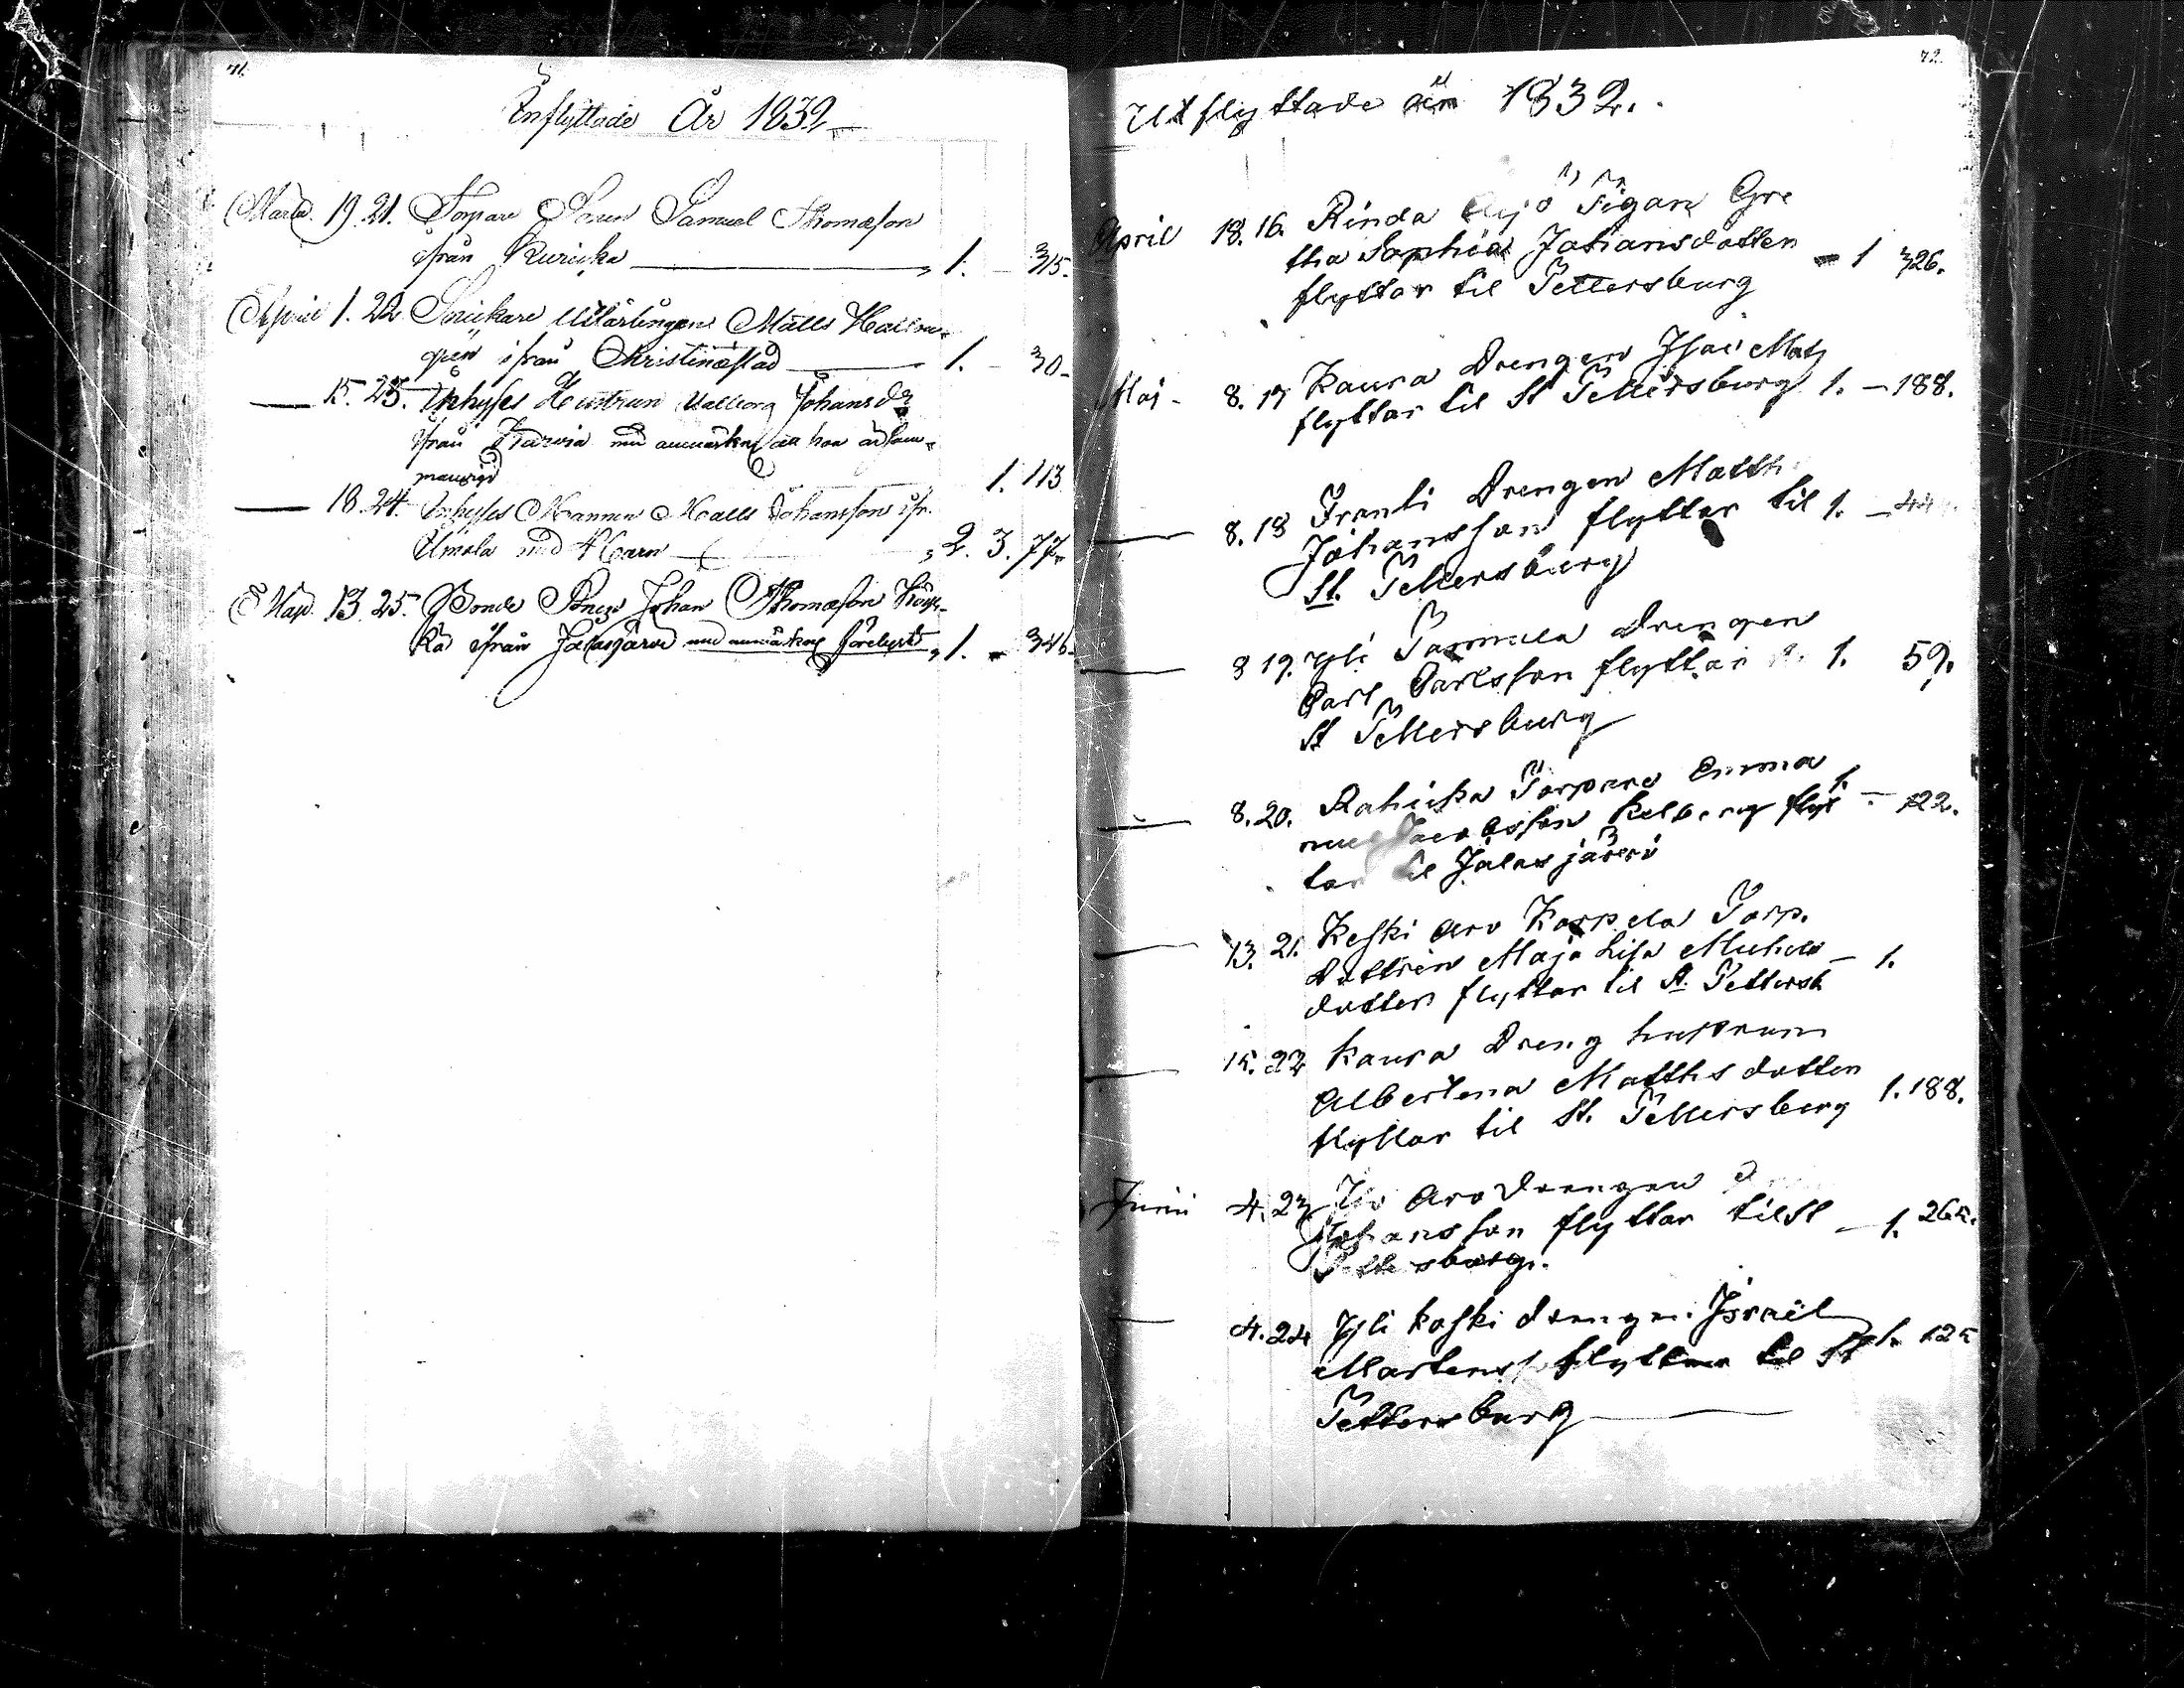 71.
Inflyttade År 1832
Martii 19. 21. Torpare Sonen Samuel Thomasson
ifrån Kurikka 1. 315.
April 1. 22 Snickare Lärlingen Matts Hallon
qvist ifrån Christinæstad 1. 30
15. 23. Inhyses Hustrun Valborg Johansdr
ifrån Karvia med anmärkn att hon är
1. 113
18. 24. Inhyses Mannen Matts Johansson ifr.
Ilmola med 2. 3. 77
Maji 13. 25. Bonde Sonen Johan Thomasson
ifrån Jalasjärvi med anmärkng 1. 346
72.
Utflyttade år 1832.
April 18. 16. Rinda Pigan Gre
tha Sophia Johansdotter 1 326.
flyttar til Pettersburg
Maj 8. 17 Kaura Drengen Isac Mats
flyttar til St Pettersburg 1. 188.
8. 18 Drengen Matth
Johansson flyttar til 1.
St. Pettersburg
8 19. Yli Drengen
Carl Carlsson flyttar 1. 59.
St Pettersburg
8. 20. Torpare Emma
nuel Jacobsson flyt 1. 122.
tar til Jalasjärvi
13. 21. Keski Aro Karpela Torp.
Dottren Maja Lisa Michels 1.
dotter flyttar til St. Pettersb
15. 22 Kaura Dreng hustrun
Albertina Matths dotter
flyttar til St. Pettersburg 1. 188.
Junii 4. 23 Aro Drengen
Johansson flyttar til St 1. 265.
Pettersburg.
4. 24 Yli Koski drengen Israel
Martenss flyttar til St 1. 125
Pettersburg